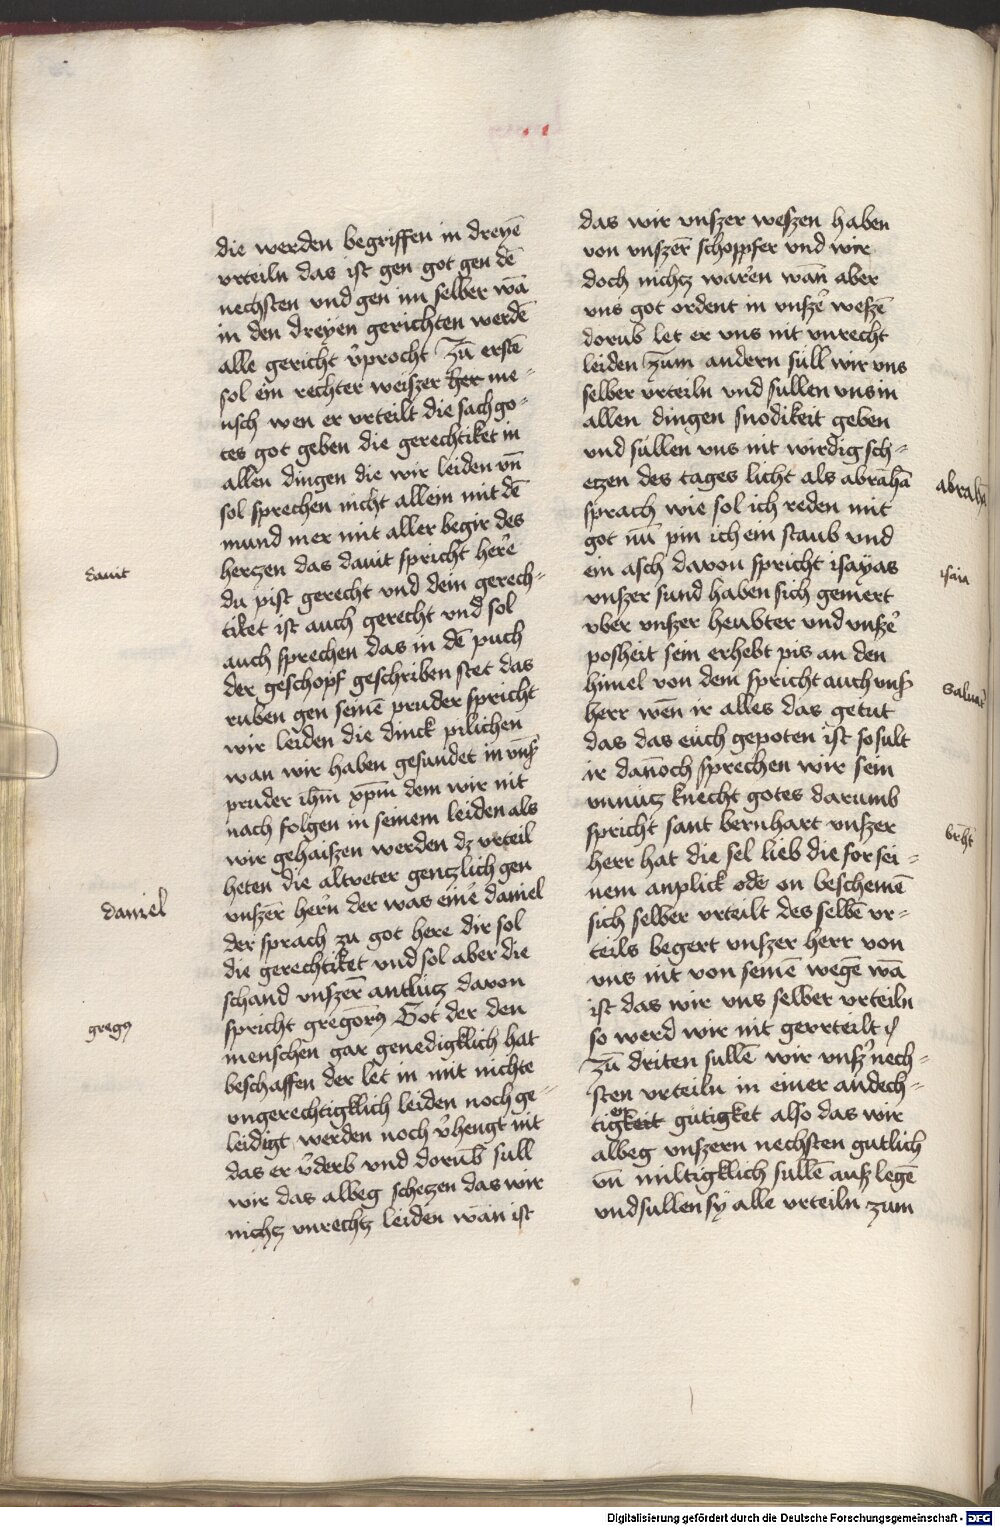 die werden begriffen in dreyē
vrteiln das ist gen got gen dē
nechsten vnd gen im selber wā
in den dreyen gerichten werdē
alle gericht v̉procht Zū erstē
sol ein rechter weiszer her me-
nsch wen er vrteilt die sach go-
tes got geben die gerechtiket in
allen dingen die wir leiden vn̄
sol sprechen nicht allein mit dē
mund mer mit aller begir des
hertzen das dauit spricht here
du pist gerecht vnd dein gerech-
tiket ist auch gerecht vnd sol
auch sprechen das in dē puch
der geschopf geschriben stet das
ruben gen seinē pruder spricht
wir leiden die dinck pilichen
wan wir haben gesundet in vnsz̉
pruder ihm̄ xpm̄ dem wir nit
nach folgen in seinem leiden als
wir gehaiszen werden dz vrteil
heten die altveter gentzlich gen
vnszer̄ hern der was einē daniel
der sprach zu got here dir sol
die gerechtiket vnd sol aber die
schand vnszer̄ antlutz davon
spricht gregorꝰ Got der den
menschen gar genedigklich hat
beschaffen der let in mit nichte
vngerechtigklich leiden noch ge-
leidigt werden noch v̉hengt nit
das er v̉derb vnd dorūb sull
wir das albeg schetzen das wir
nichtz vnrechtz leiden wan̄ ist
dauit
daniel
gregꝰ
das wir vnszer weszen haben
von vnszer̄ schoppfer vnd wir
doch nichtz waren wan̄ aber
vns got ordent in vnsz̉ weszē
dorūb let er vns nit vnrecht
leiden zum andern sull wir vns
selber vrteiln vnd sullen vns in
allen dingen snodikeit geben
vnd sullen vns nit wirdig sch-
etzen des tages licht als abrahā
sprach wie sol ich reden mit
got nu pin ich ein staub vnd
ein asch davon spricht isayas
vnszer sund haben sich gemert
vber vnszer heubter vnd vnsz̉
posheit sein erhebt pis an den
himel von dem spricht auch vnsz̉
herr wen̄ ir alles das getut
das das euch gepoten ist so sult
ir dan̄och sprechen wir sein
vnnutz knecht gotes darumb
spricht sant bernhart vnszer
herr hat die sel lieb die for sei-
nem anplick ode on beschemē
sich selber vrteilt des selbē vr-
teils begert vnszer herr von
vns nit von seinē wegē wā
ist das wir vns selber vrteiln
so werd wir nit gevrteilt
Zū driten sullē wir vnsz̉ nech-
sten vrteiln in einer andech-
tigkeit gutigket also das wir
albeg vnszern nechsten gutlich
vn̄ miltigklich sullē ausz legē
vnd sullen sy alle vrteiln zum
abrahā
isaia
saluatꝰ
br̄ht
Digitalisierung gefördert durch die Deutsche Forschungsgemeinschaft - DFG